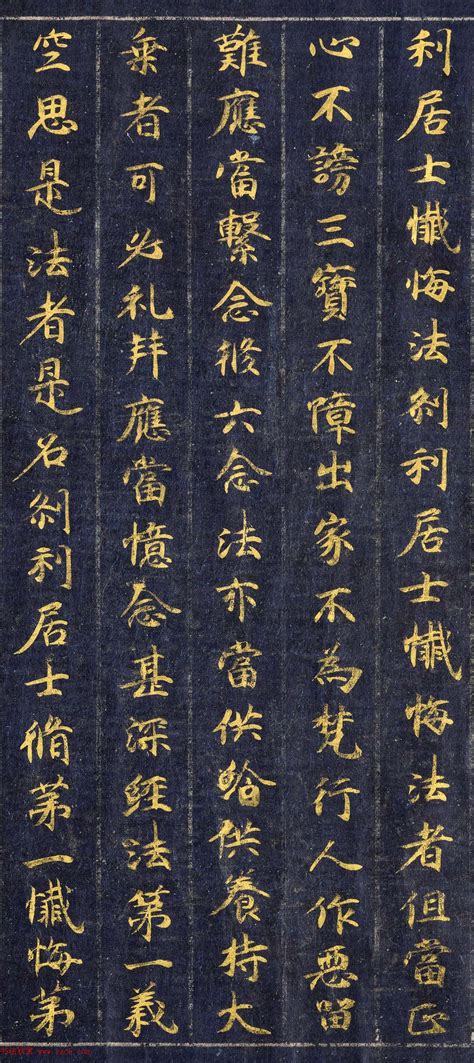 利居士懺悔法刹利居士懺悔法者但當正
心不謗三寶不障出家不為梵行人作惡留
難應當繫念修六念法亦當供給供養持大
乗者可必礼拜應當憶念甚深經法第一義
空思是法者是名刹利居士脩第一懺悔第